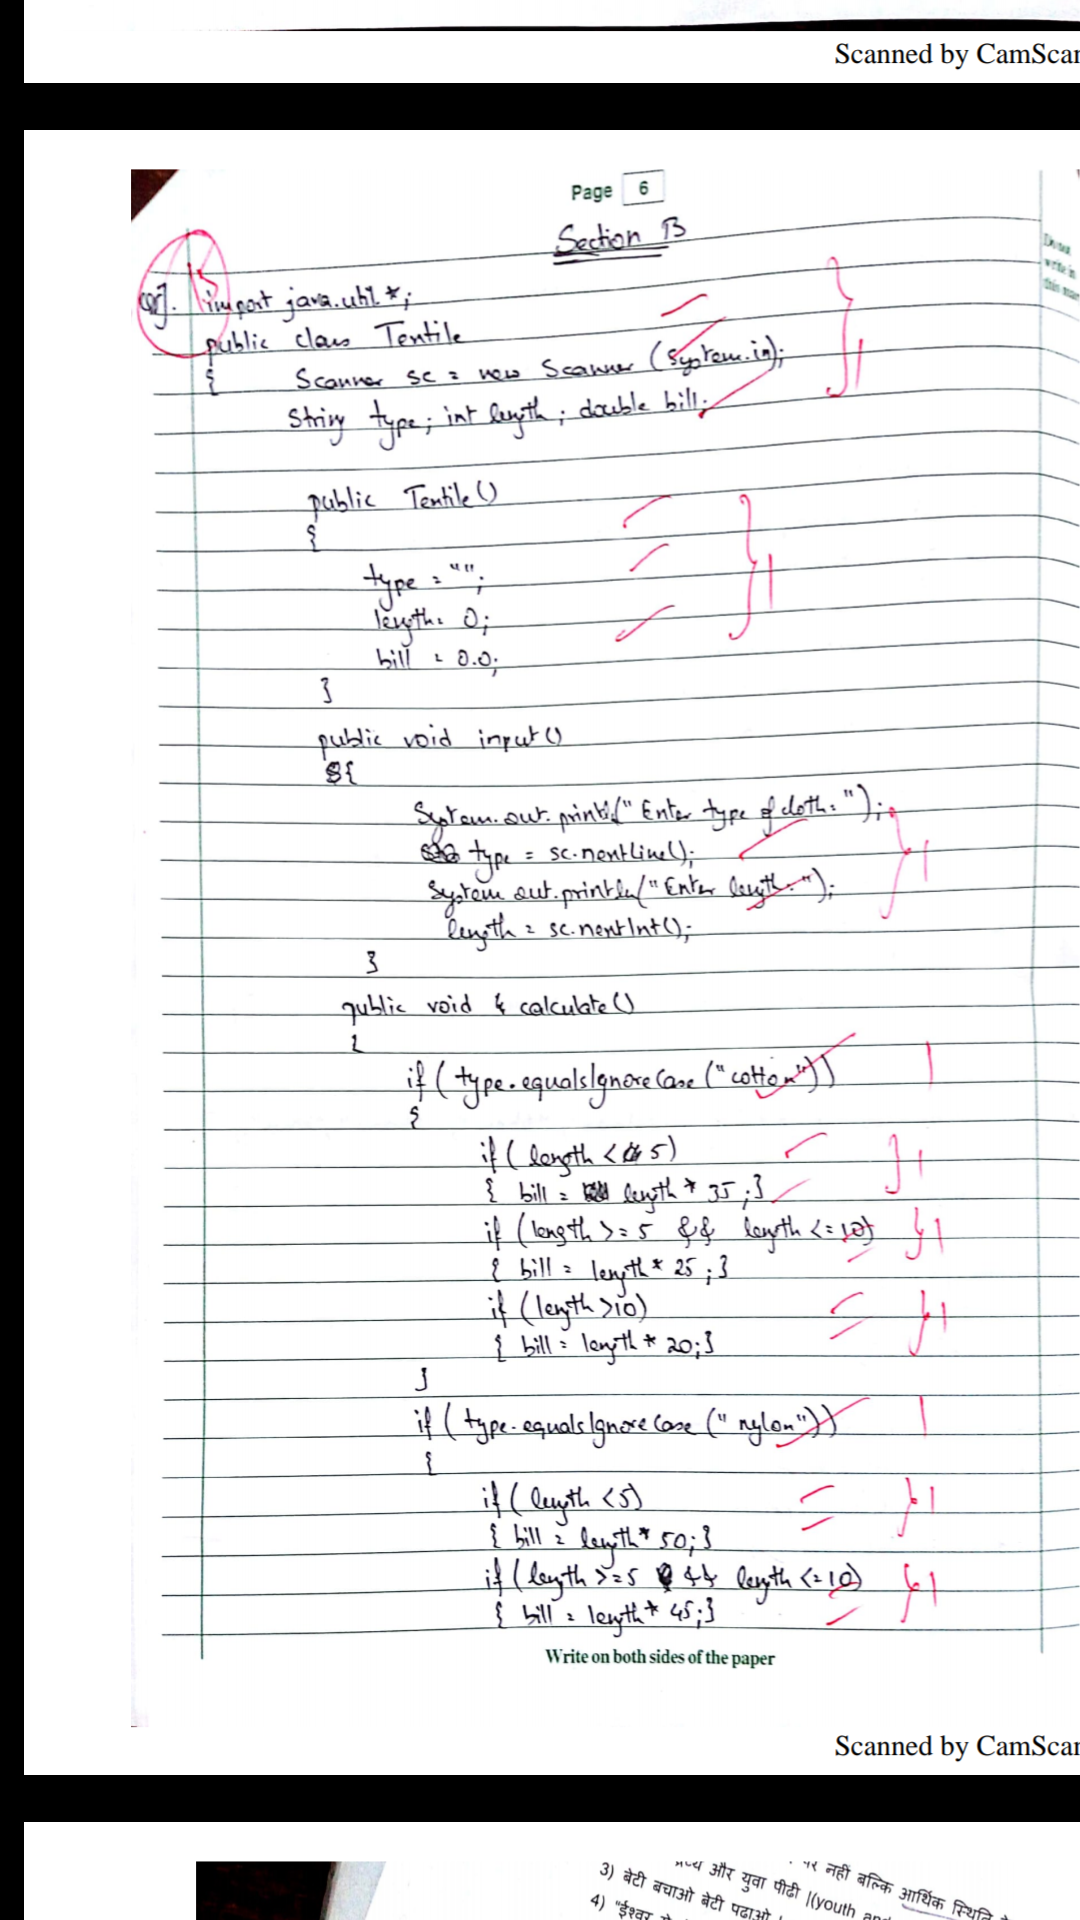 Scanned by CamScan
Page 6
Section B
import java.util.*;
public class Textile
{ Scanner sc = new Scanner (System.in);
String type; int length; double bill;
public Textile()
{
type = "";
length = 0;
bill = 0.0;
}
public void input()
{
System.out.println("Enter type of cloth:");
type = sc.nextLine();
System.out.println("Enter length:");
length = sc.nextInt();
}
public void calculate()
{
if (type.equalsIgnoreCase("cotton"))
{
if (length < 5)
{ bill = length * 35;}
if (length >= 5 && length <= 10)
{ bill = length * 25;}
if (length >10)
{ bill = length * 20;}
}
if (type.equalsIgnoreCase("nylon"))
{
if (length <5)
{ bill = length * 50;}
if (length >=5 && length <=10)
{ bill = length * 45;}
Write on both sides of the paper
Do not
write in
this mar
Scanned by CamScan
नहीं बल्कि आर्थिक स्थिति
और युवा पीढी |(youth an
3) बेटी बचाओ बेटी पढाओ
4) "ईश्वर